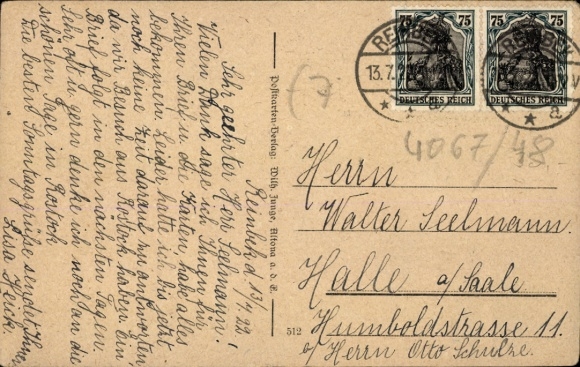 Reinbek d. 13/7. 22.
Sehr geehrter Herr Seelmann!
Vielen Dank sage ich Ihnen für
Ihren Brief u. die Karten, habe alles
bekommen. Leider hatte ich bis jetzt
noch keine Zeit darauf zu antworten,
da wir Besuch aus Rostock haben ein
Brief folgt in den nächsten Tagen.
Sehr oft u. gern denke ich noch an die
schönen Tage in Rostock
Die besten Sonntagsgrüße sendet Ihnen
Lisa
Postkarten-Verlag: Wilh. Junge, Altona a. d. E.
512
75 75
DEUTSCHES REICH
75 75
DEUTSCHES REICH
REINBEK
13.7.22
a
REINBEK
a
4067/48
Herrn
Walter Seelmann.
Halle a/Saale
Humboldstrasse 11.
b/ Herrn Otto Schulze.